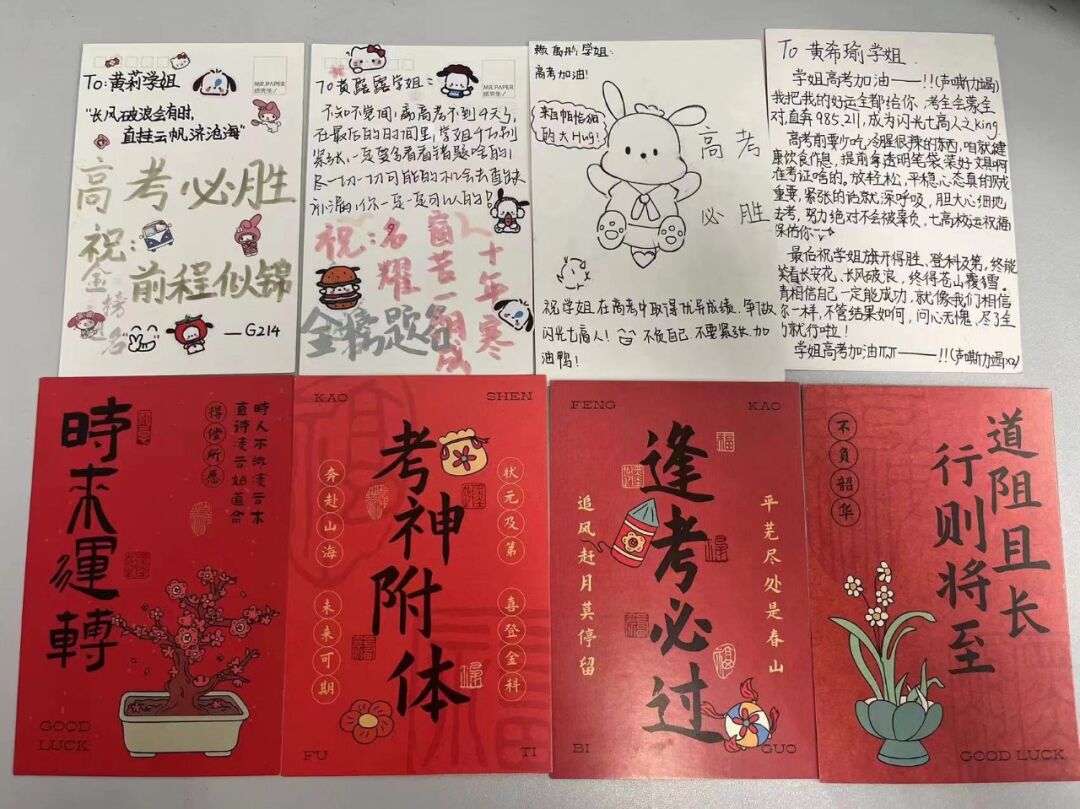 To:黄莉学姐
MR.PAPER
纸先生/
"长风破浪会有时,
直挂云帆济沧海"
高考必胜
祝:
金榜
题名
前程似锦
—G214
To 黄露露学姐:
MR.PAPER
纸先生/
不知不觉间,离高考不到4天了,
在最后的日子间里,学姐千万别
紧张,一定要多看看错题啥的!
尽一切一切可能的机会去查缺
补漏,你一定一定可以的!
祝:
人十年寒
窗苦一朝成
名耀
金榜题名
学姐:
高考加油!
来自帕恰狗
的大Hug!
高考
必胜
祝学姐在高考中取得优异成绩,争做
闪光七高人!不负自己,不要紧张,加
油鸭!
To 黄希瑜学姐.
学姐高考加油——!!(声嘶力竭)
我把我的好运全都给你,考全会蒙全
对,直奔985.211,成为闪光七高人之king.
高考前要少吃冷腥很辣的东西,咱就健
康饮食作息,提前拿透明笔袋装好文具啊
准考证啥的。放轻松,平稳心态真的很
重要,紧张的话就深呼吸,胆大心细地
去考,努力绝对不会被辜负,七高校运祝福
保佑你~
最后祝学姐旗开得胜、登科及第,终能
笑看长安花,长风破浪,终得苍山覆雪.
请相信自己一定能成功,就像我们相信
你一样,不管结果如何,问心无愧,尽了全
力就行啦!
学姐高考加油——!!(声嘶力竭x2)
時来運轉
得偿所愿
時人不識凌云木
直待凌云始道高
GOOD
LUCK
KAO
SHEN
考神附体
奔赴山海
未来可期
状元及第
喜登金科
FU
TI
FENG
KAO
逢考必过
追风赶月莫停留
平芜尽处是春山
福
BI
GUO
不負韶华
道阻且长
行则将至
GOOD LUCK